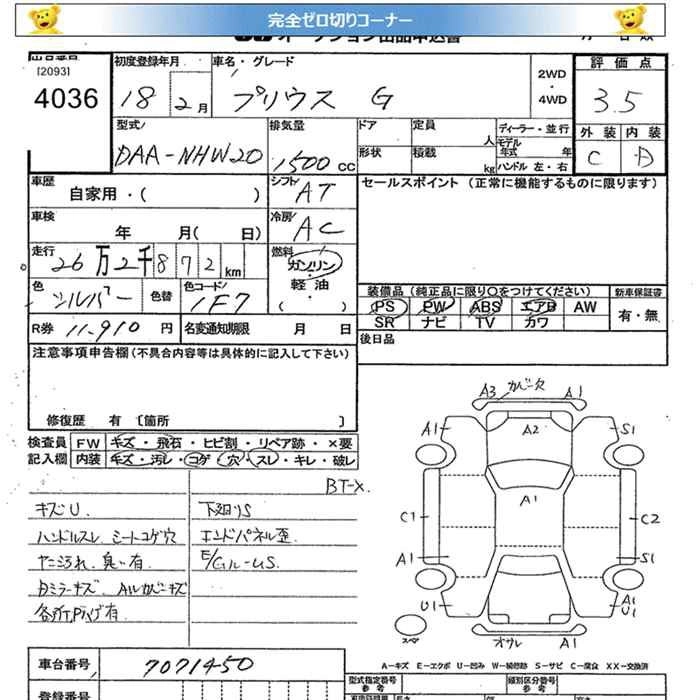 完全ゼロ切りコーナー
オークション出品申込書
出品番号
[2093]
4036
初度登録年月
18 2月
車名・グレード
プリウス G
2WD
・
4WD
評価点
3.5
外装 内装
C D
型式
DAA-NHW20
排気量
1500 CC
ドア
定員
人
形状
積載
kg
ディーラー・並行
モデル
年式
年
ハンドル 左・右
車歴
自家用・( )
シフト
AT
セールスポイント (正常に機能するものに限ります)
車検
年 月( 日)
冷房
AC
走行
26万2千872km
燃料
ガソリン
・
軽油
・
( )
色
シルバー
色替
色コード
1F7
装備品 (純正品に限り○をつけてください)
PS PW ABS エアB AW
SR ナビ TV カワ
新車保証書
有・無
R券 11,910 円
名変通知期限 月 日
後日品
注意事項申告欄(不具合内容等は具体的に記入して下さい)
修復歴 有 [箇所 ]
検査員
記入欄
FW キズ・飛石・ヒビ割・リペア跡・×要
内装 キズ・汚レ・コゲ・穴・スレ・キレ・破レ
BT-X.
キズU.
ハンドルスレ シートコゲ穴
ヤニ汚れ、臭い有
各所Pハゲ有
下廻りS
エンドパネル歪
A3 カバー欠 A1
A1
A2
S1
A1
C1
C2
A1
S1
U1
A1
U1
スペア
オサレ A1
A-キズ E-エクボ U-凹み W-補修跡 S-サビ C-腐食 XX-交換済
車台番号
7071450
型式指定番号
参考
類別区分番号
参考
登録番号